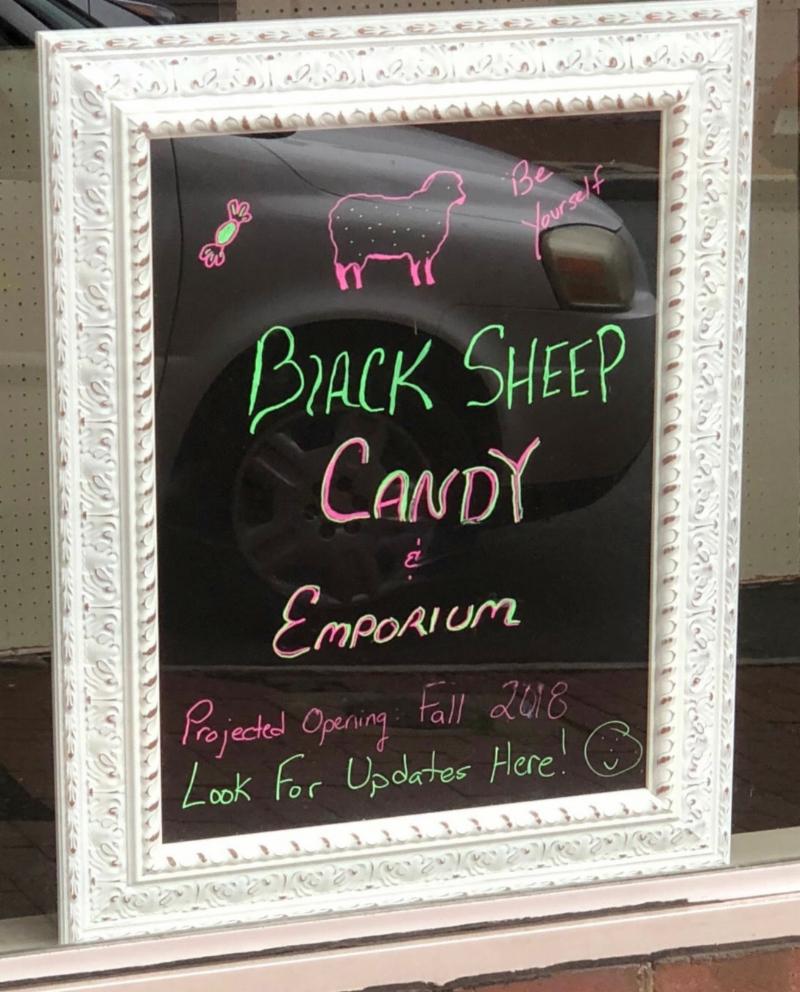 Be
Yourself
BlACK SHEEP
CANDY
&
EMPORIUM
Projected Opening: Fall 2018
Look For Updates Here!